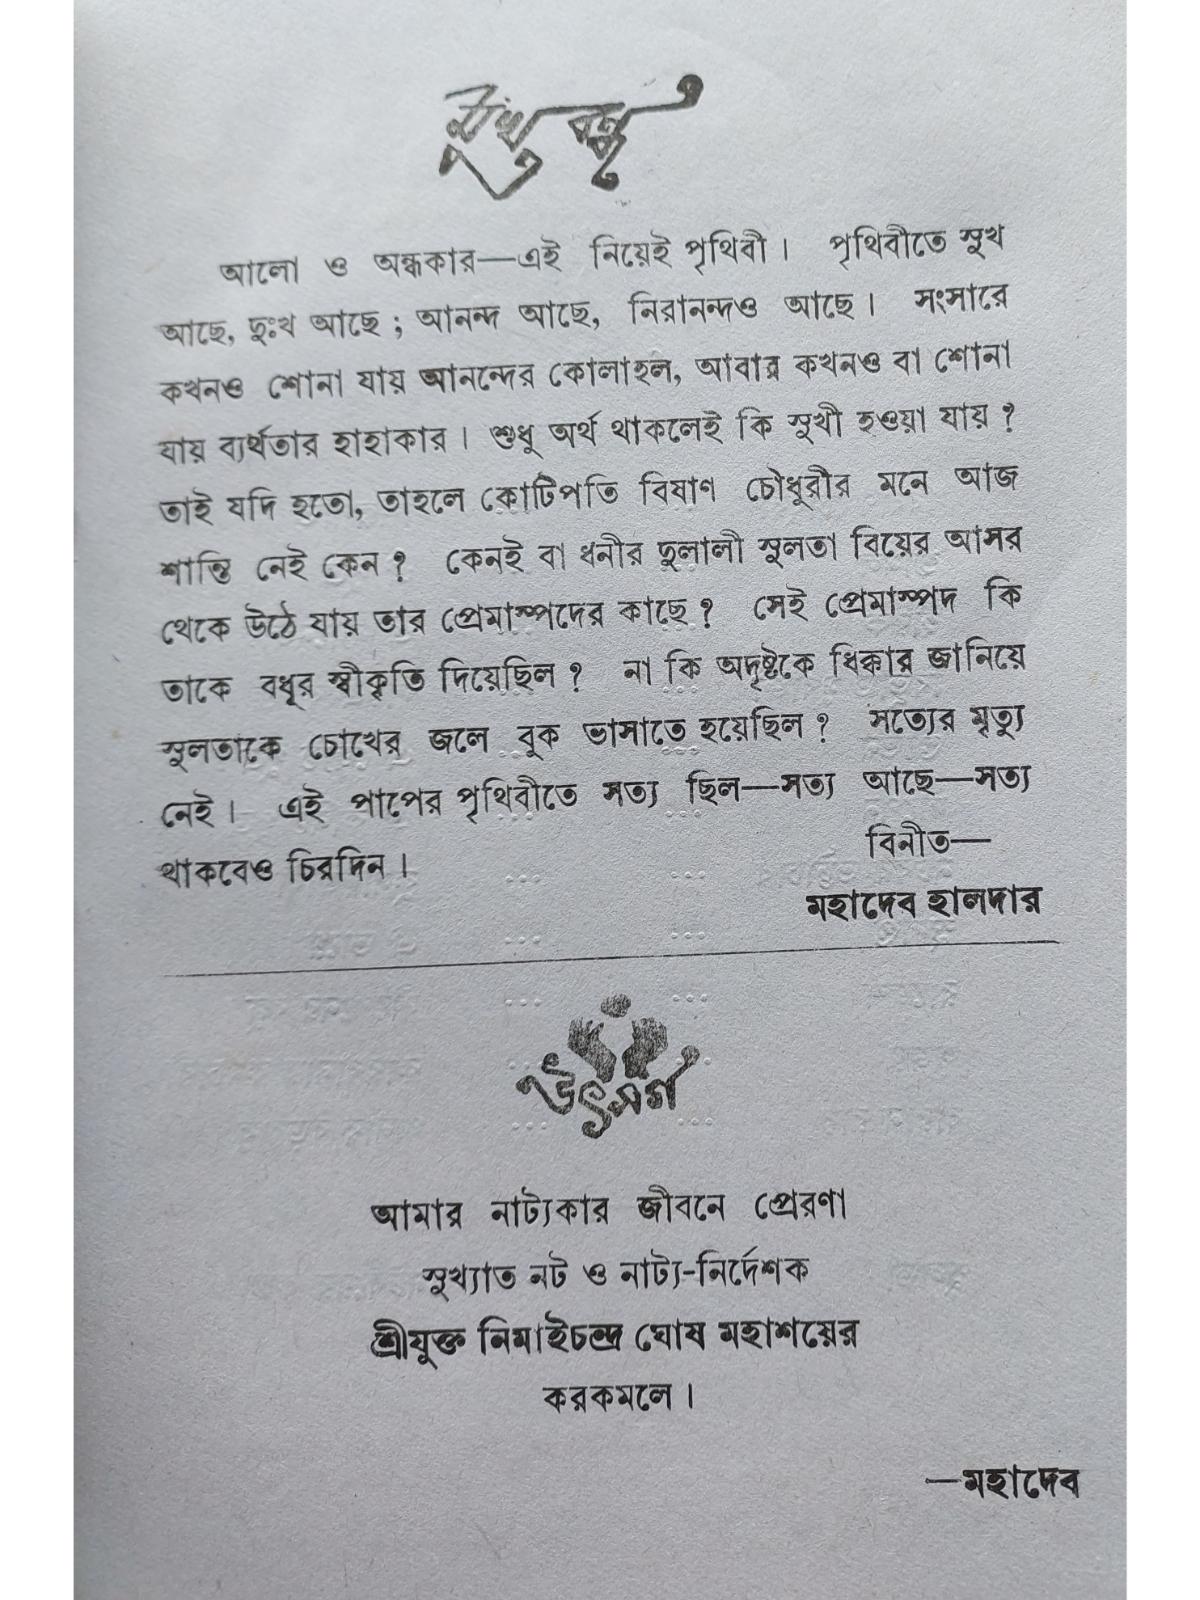 মুখবন্ধ
আলো ও অন্ধকার—এই নিয়েই পৃথিবী। পৃথিবীতে সুখ
আছে, দুঃখ আছে; আনন্দ আছে, নিরানন্দও আছে। সংসারে
কখনও শোনা যায় আনন্দের কোলাহল, আবার কখনও বা শোনা
যায় ব্যর্থতার হাহাকার। শুধু অর্থ থাকলেই কি সুখী হওয়া যায়?
তাই যদি হতো, তাহলে কোটিপতি বিষাণ চৌধুরীর মনে আজ
শান্তি নেই কেন? কেনই বা ধনীর দুলালী সুলতা বিয়ের আসর
থেকে উঠে যায় তার প্রেমাস্পদের কাছে? সেই প্রেমাস্পদ কি
তাকে বধূর স্বীকৃতি দিয়েছিল? না কি অদৃষ্টকে ধিক্কার জানিয়ে
সুলতাকে চোখের জলে বুক ভাসাতে হয়েছিল? সত্যের মৃত্যু
নেই। এই পাপের পৃথিবীতে সত্য ছিল—সত্য আছে—সত্য
থাকবেও চিরদিন।
বিনীত—
মহাদেব হালদার
উৎসর্গ
আমার নাট্যকার জীবনে প্রেরণা
সুখ্যাত নট ও নাট্য-নির্দেশক
শ্রীযুক্ত নিমাইচন্দ্র ঘোষ মহাশয়ের
করকমলে।
—মহাদেব